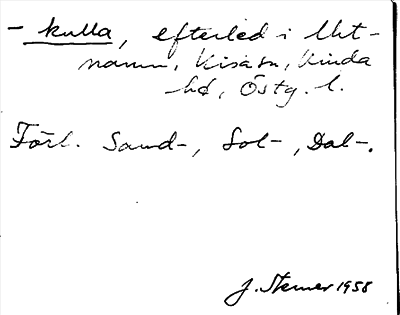 -kulla, efterled i Ukt-
namn, Kisa sn, Kinda
hd, Östg. l.
Förl. Sand-, Sol-, Dal-.
J. Stemer 1958